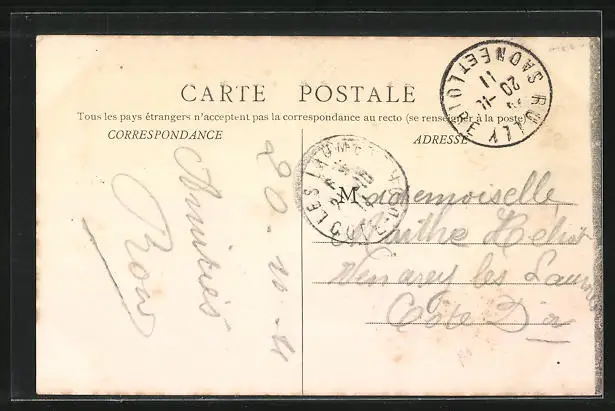 CARTE POSTALE
Tous les pays étrangers n'acceptent pas la correspondance au recto (se renseigner à la poste)
CORRESPONDANCE
ADRESSE
RULLY
SAONE ET LOIRE
20 -11
11
LES LAUMES
COTE-D'OR
20
Amitiés
Mademoiselle
Marthe
Venarey les Laumes
Côte D'or